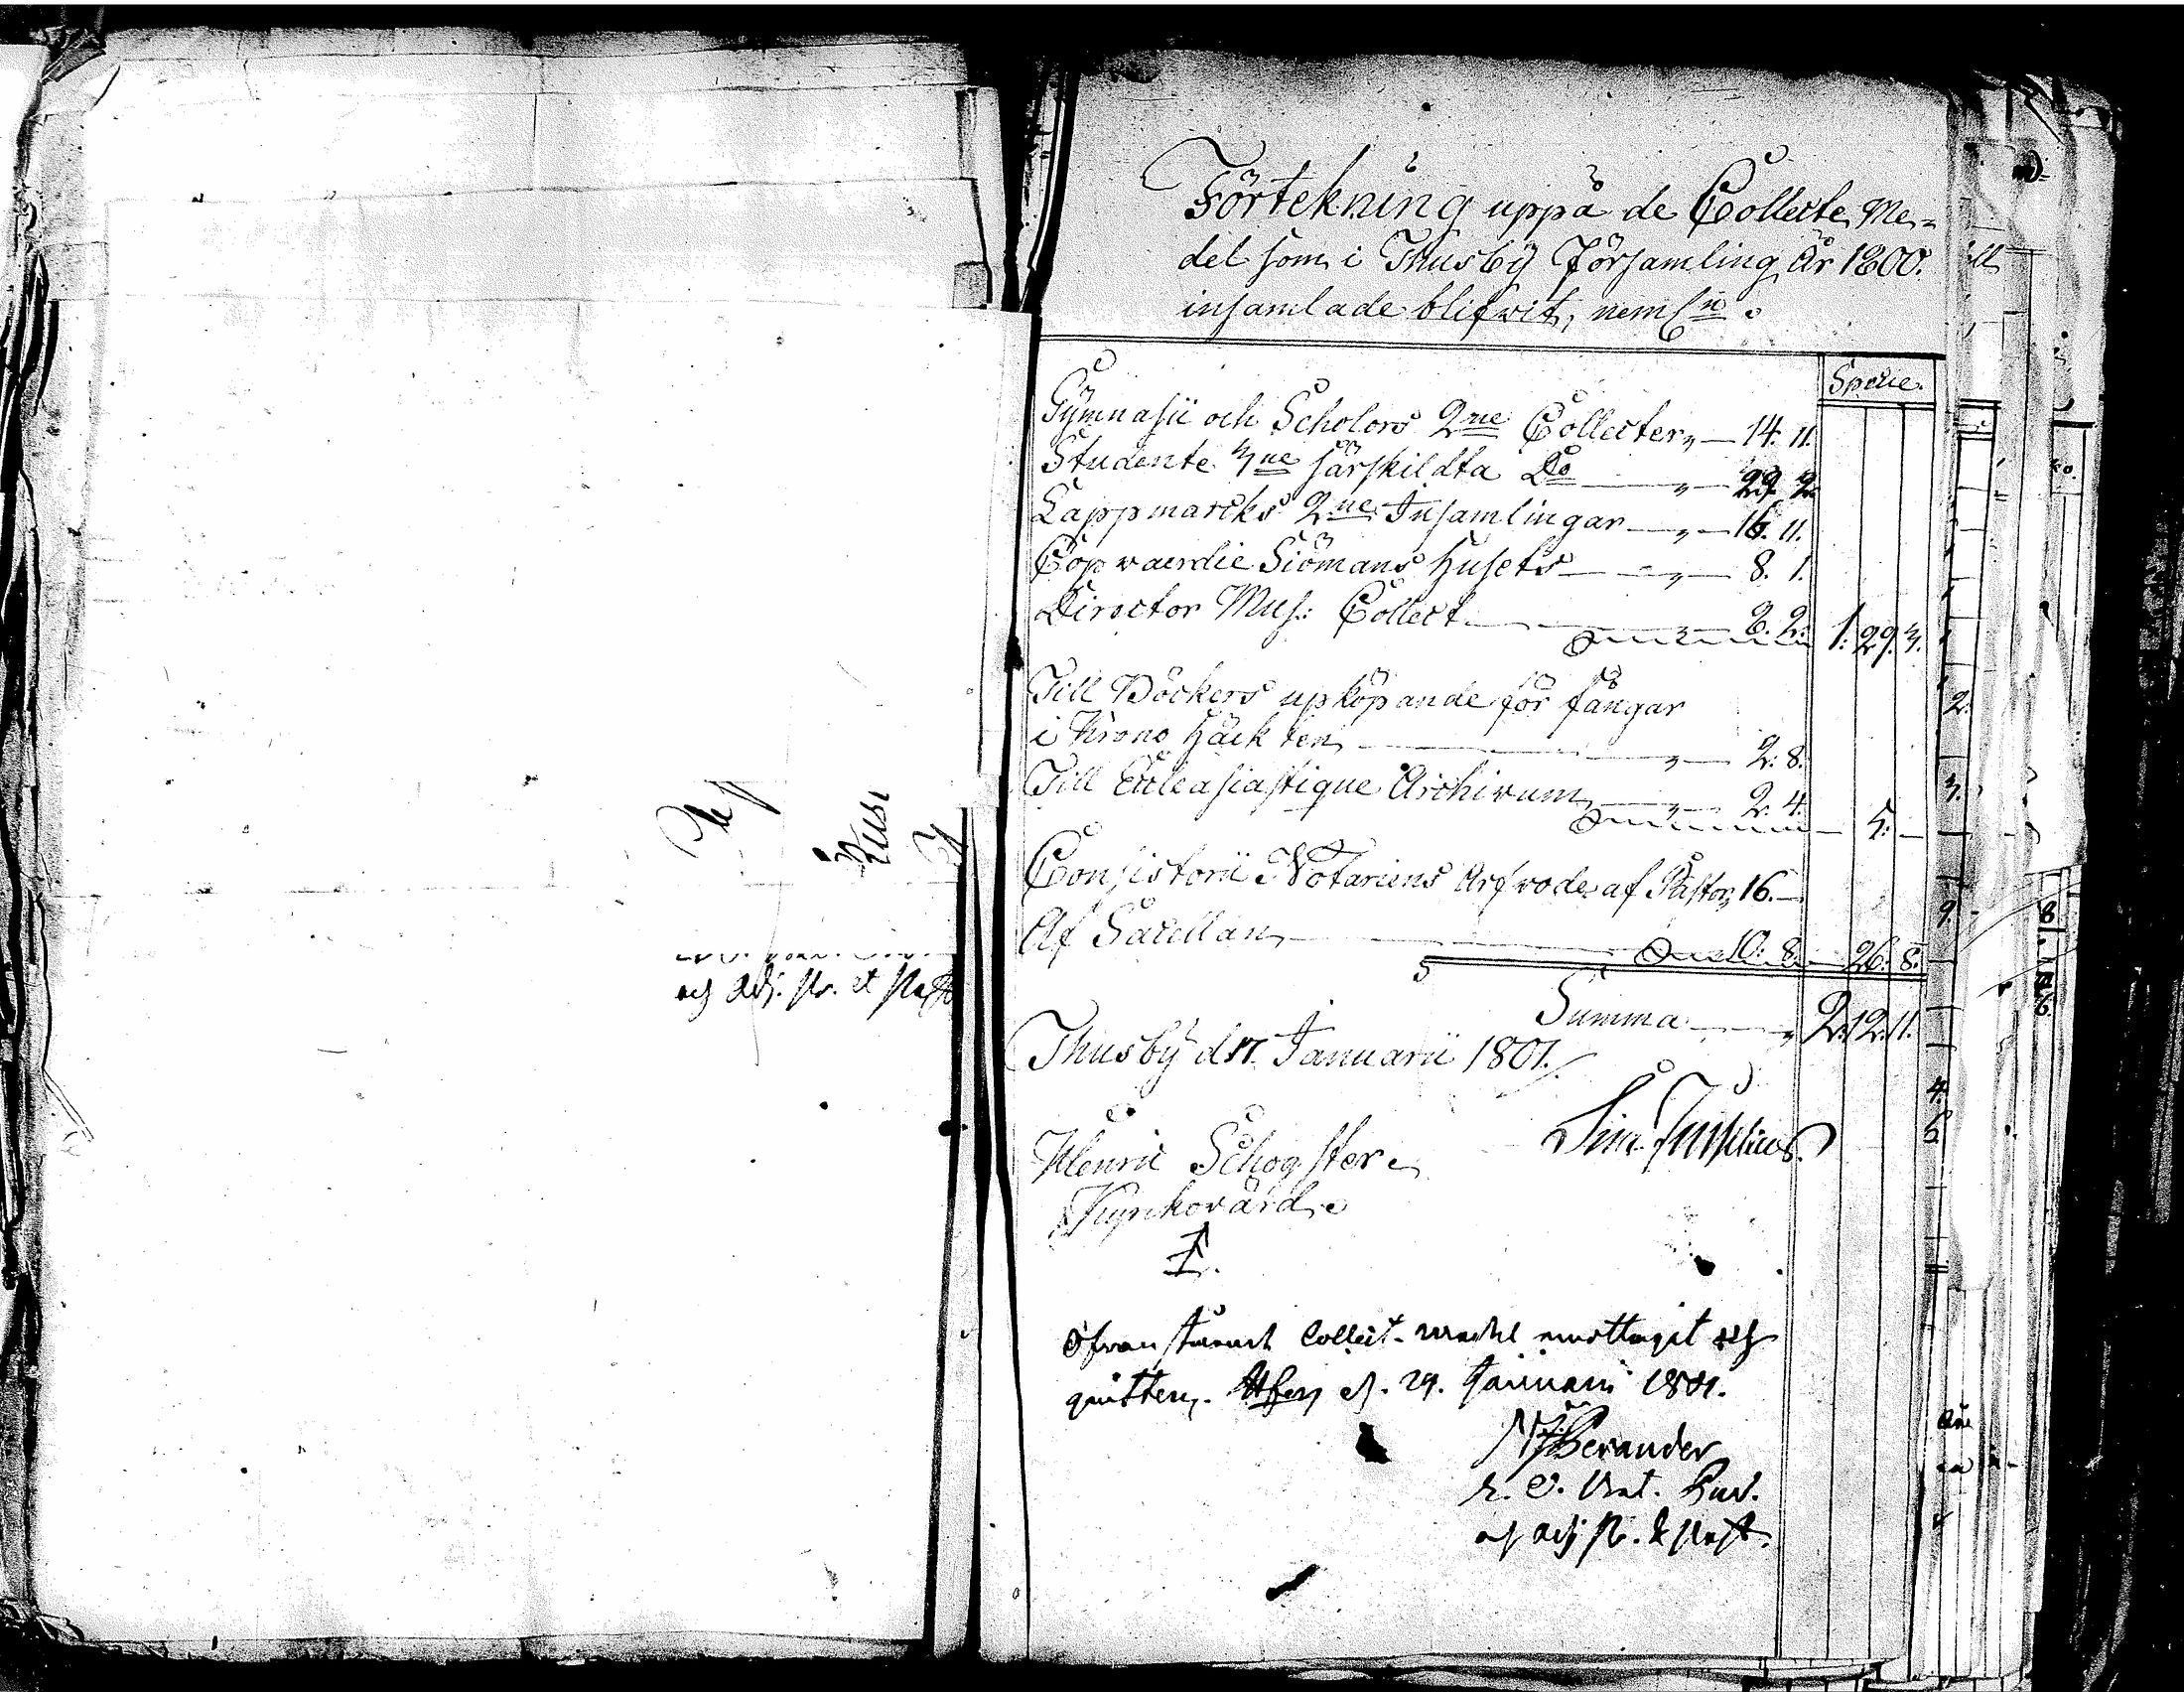 Förtekning uppå de Collecte Me-
del som i Thusby Församling År 1800.
insamlade blifvit, neml:n
Specie.
Gymnasii och Scholors 2ne Collecter 14. 11.
Studente 3ne särskildta Do 2
Lappmarcks 2ne Insamlingar 16. 11.
Copvaerdie Siömans Husets 8. 1.
Director Mus: Collect 8. 2. 1. 29. 3.
Till Böckers upköpande för fångar
i Krono Häckten 2. 8.
Till Eccleasiastique Archivum 2. 4. 5.
Consistorii Notariens Arfvode af Pastor 16.
Af Sacellan 10. 8. 26. 8.
Summa 2. 12. 11.
Thusby d 17. Januarii 1801.
Henric Schogster
Kyrkovärd
Ofvanstående Collect-medel emottagit och
qvitterar. d. 29. Januarii 1801.
Berander
och Adj. et Past